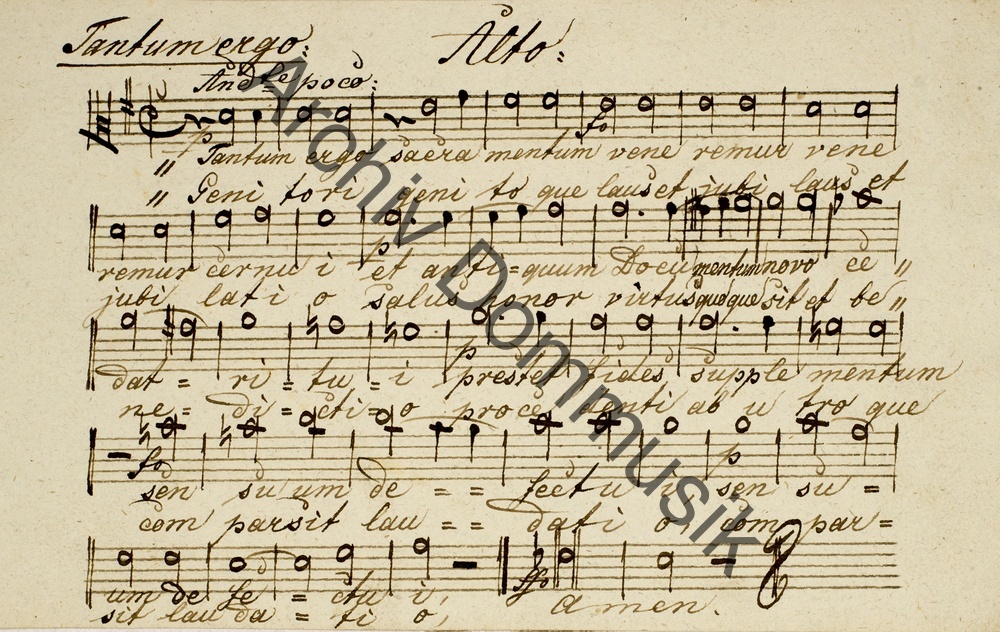 Tantum ergo: Alto:
And.te poco:
p fo
" Tantum ergo sacra mentum vene remur vene
" Geni tori geni to que laus et jubi laus et
p
remur cernu i et anti = quum Docu mentum novo ce "
jubi lati o Salus honor virtus quoque sit et be "
p
dat = ri = tu = i prestet fides supple mentum
ne = di = cti = o proce denti ab u tro que
fo p
sen su um de = = fectu i sen su =
com par sit lau = = dati o com par =
ffo
um de fe = ctu i, a men.
sit lau da = ti o,
Archiv Dommusik